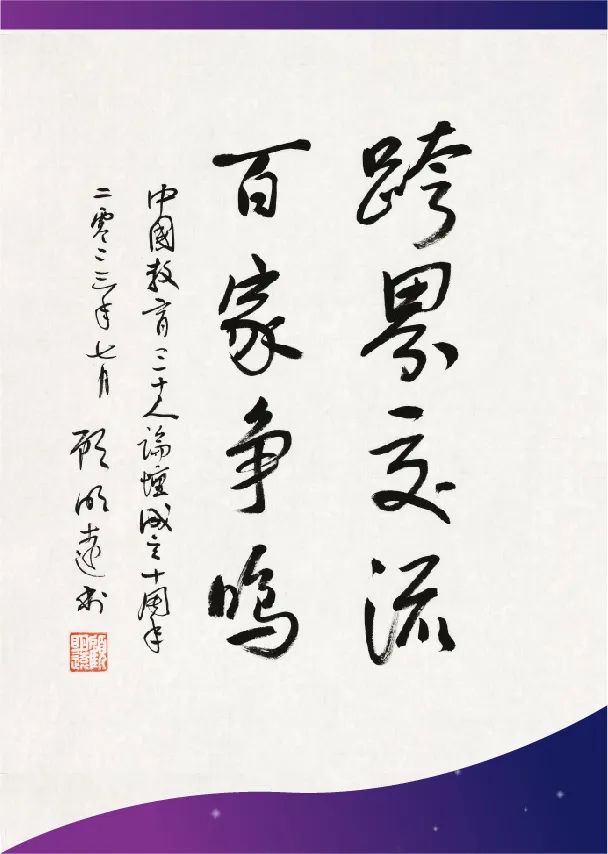 跨界交流
百家争鸣
中国教育三十人论坛成立十周年
二零二三年七月 顾明远书
顾明远